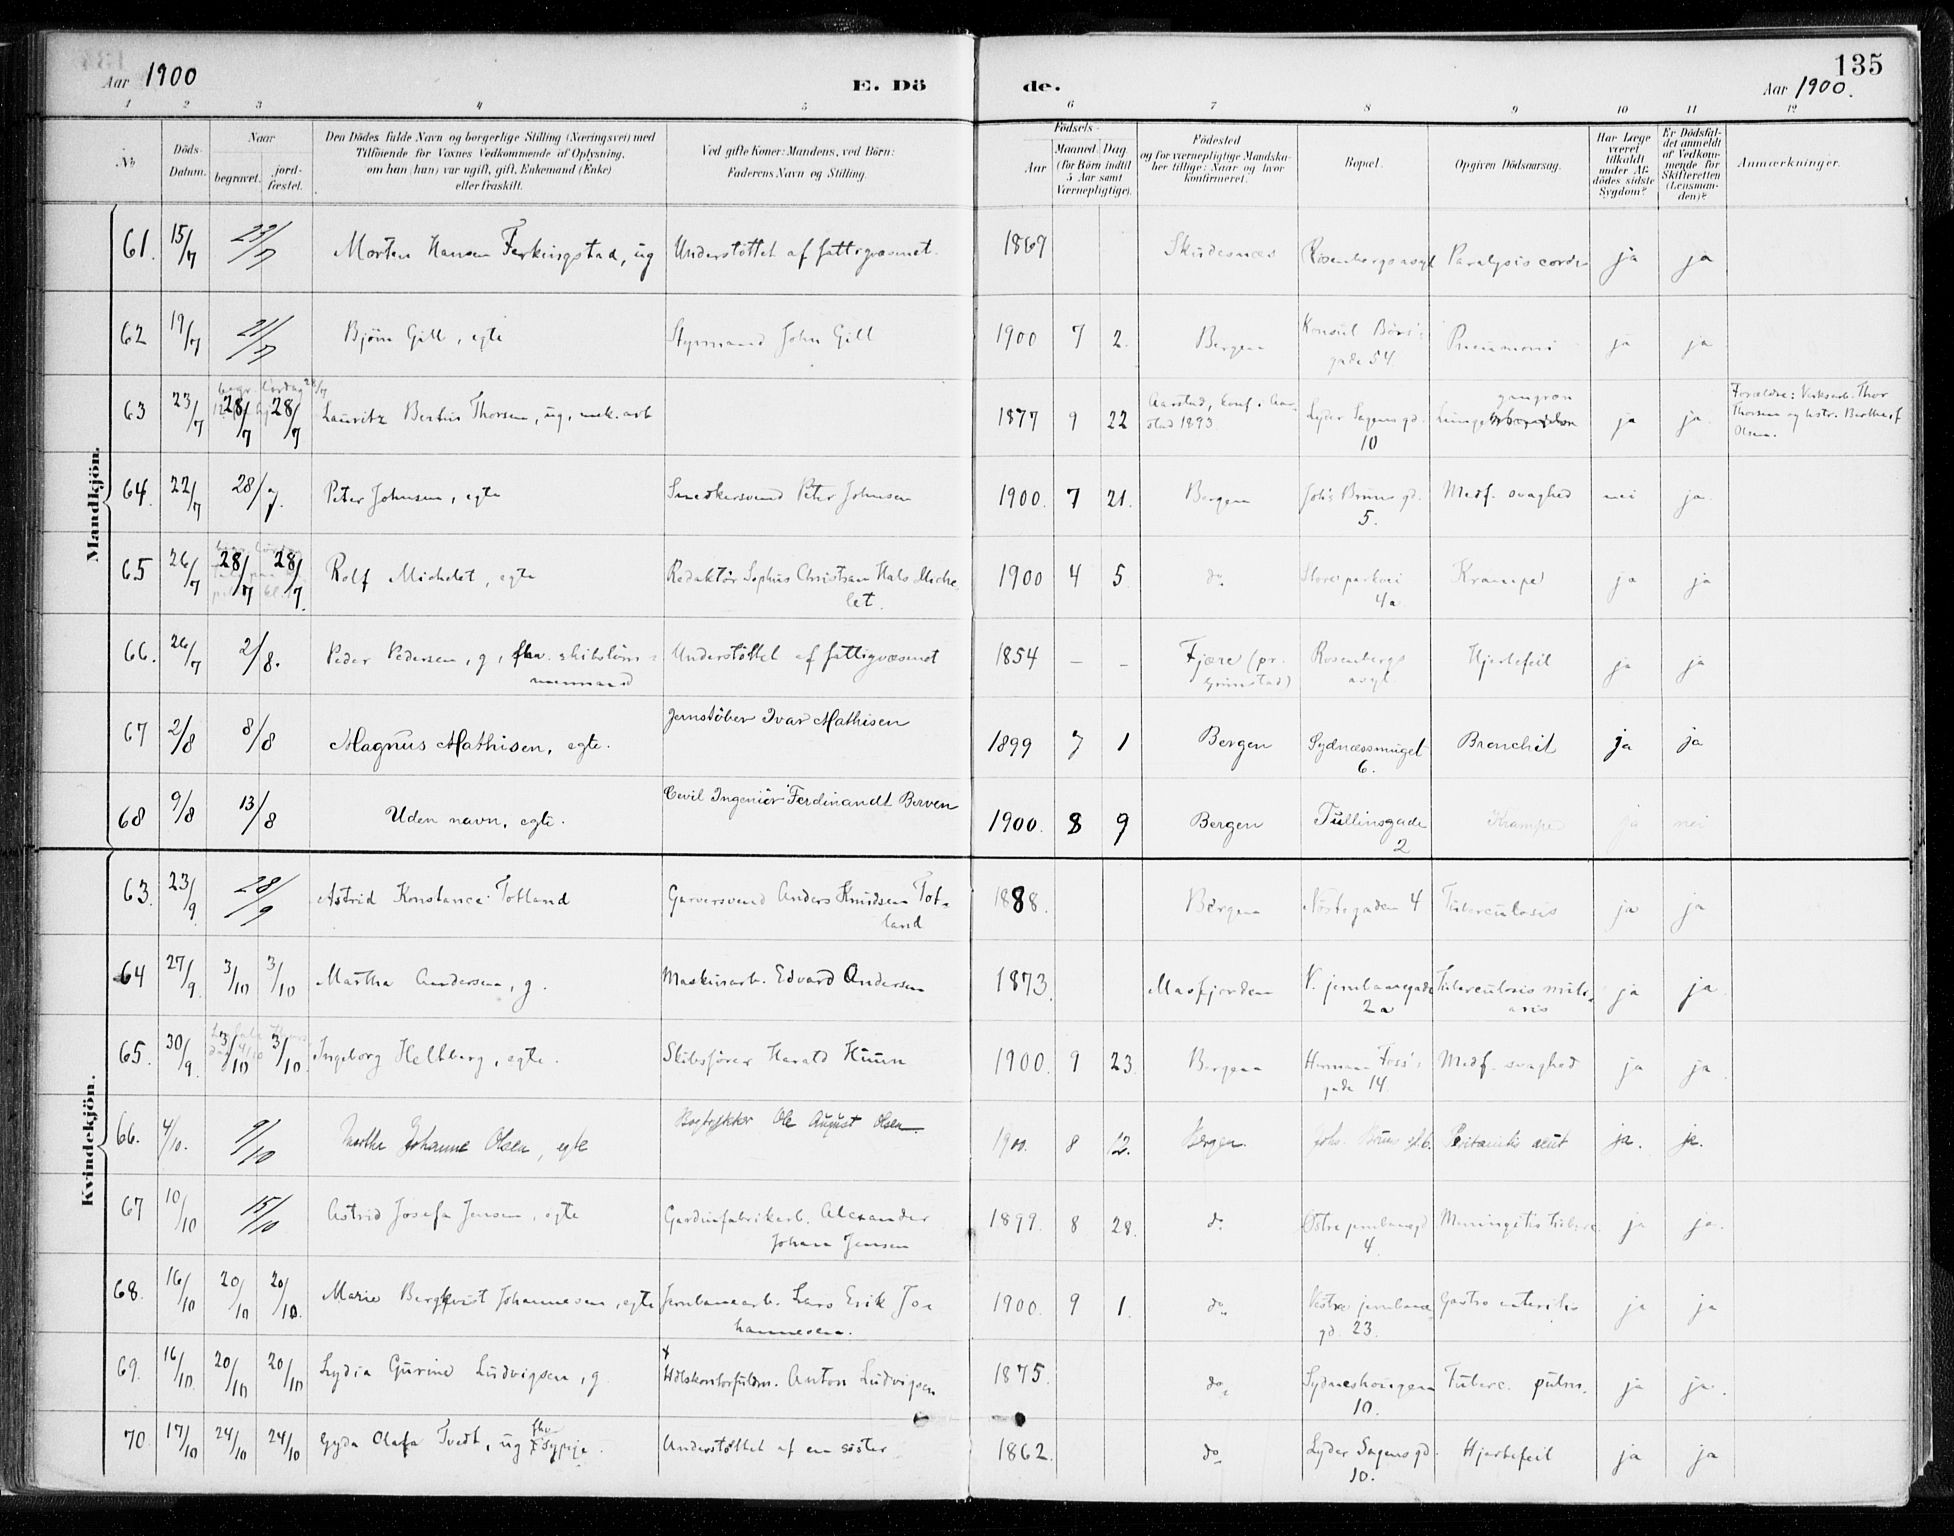 Aar 1900
E. Dö
de.
135
Aar 1900.
1 2 3 4 5 6 7 8 9 10 11 12
No
Döds-Datum.
Naar
begravet.
jord-fæstet.
Den Dödes fulde Navn og borgerlige Stilling (Næringsvei) med
Tilföiende for Voxnes Vedkommende af Oplysning,
om han (hun) var ugift, gift, Enkemand (Enke)
eller fraskilt.
Ved gifte Koner: Mandens, ved Börn:
Faderens Navn og Stilling.
Födsels-
Aar
Maaned Dag
(for Börn indtil
5 Aar samt
Værnepligtige).
Födested
og for værnepligtige Mandska-
ber tillige: Naar og hvor
konfirmeret.
Bopæl.
Opgiven Dödsaarsag.
Har Læge
været
tilkaldt
under Af-
dödes sidste
Sygdom?
Er Dödsfal-
det anmeldt
af Vedkom-
mende for
Skifteretten
(Lensman-
den)?
Anmærkninger.
Mandkjön.
61. 15/7 Morten Hansen Ferkingstad, ug Understöttet af fattigvæsenet. 1869 Skudesnæs Rosenbergsasyl Paralysis cordis ja ja
62 19/7 21/7 Bjørn Gill, egte Styrmand John Gill 1900 7 2. Bergen Konsul Børs's gade 54 Pneumoni ja ja
63 23/7 28/7 28/7 Lauritz Berthus Thorsen, ug, mek. arb 1877 9 22 Aarstad, konf. i Aarstad 1893 Lyder Sagens gd. 10 Lunge gangræn ja ja Forældre: Verksarb. Thor Thorsen og hstr. Berthe, f Olsen.
64 22/7 28/7. Peter Johnsen, egte Snedkersvend Peter Johnsen 1900. 7 21. Bergen Joh's Bruns gd. 5. Medf. svaghed nei ja
65 26/7 28/7 28/7. Rolf Michelet, egte Redaktör Sophus Christian Hals Michelet. 1900 4 5 do. Store parkvei 4a Krampe ja ja
66. 26/7 2/8. Peder Pedersen, g, fhv. skibstømmermand Understöttet af fattigvæsenet 1854 – – Fjære (pr. Grimstad) Rosenbergs asyl Hjertefeil ja ja
67 2/8 8/8 Magnus Mathisen, egte. Jernstöber Ivar Mathisen 1899 7 1 Bergen Sydnæssmuget 6. Bronchit ja ja
68 9/8 13/8 Uden navn, egte. Civil Ingeniör Ferdinandt Berven 1900. 8 9 Bergen Tullinsgade 2 Krampe ja nei
Kvindekjön.
63. 23/9 28/9 Astrid Konstance Totland Garversvend Anders Knudsen Totland 1888. Bergen Nöstegaden 4 Tuberculosis ja ja
64 27/9. 3/10 3/10 Martha Andersen, g. Maskinarb. Edvard Andersen 1873. Masfjorden V. jernbanegade 2a Tuberculosis miliaris ja ja
65. 30/9. 3/10 3/10. Ingeborg Hellberg, egte. Skibsförer Harald Huun 1900. 9 23. Bergen Herman Foss's gade 14. Medf. svaghed ja ja
66. 4/10. 9/10 Marthe Johanne Olsen, egte Bogtrykker Ole August Olsen. 1900. 8 12. Bergen. Johs. Bruns gd. 6. Peritonitis acut ja. ja.
67 10/10 15/10 Astrid Josefa Jensen, egte Gardinfabrikarb. Alexander Johan Jensen 1899. 8 28. do Østre jernbanegd 4. Meningitis tuberc. ja ja.
68. 16/10 20/10 20/10. Marie Bergkvist Johannesen, egte Jernbanearb. Lars Erik Johannesen. 1900. 9 1. do. Vestre jernbanegd. 23. Gastro enteritis ja ja
69. 16/10. 20/10 20/10 Lydia Gurine Ludvigsen, g. Hdlskontorfuldm. Anton Ludvigsen 1875. do. Sydneshougen 10. Tuberc. pulm. ja ja.
70. 17/10 24/10 24/10 Gyda Olafa Tvedt, ug fhv sypige. Understöttet af en söster 1862. do Lyder Sagens gd. 10. Hjertefeil ja ja